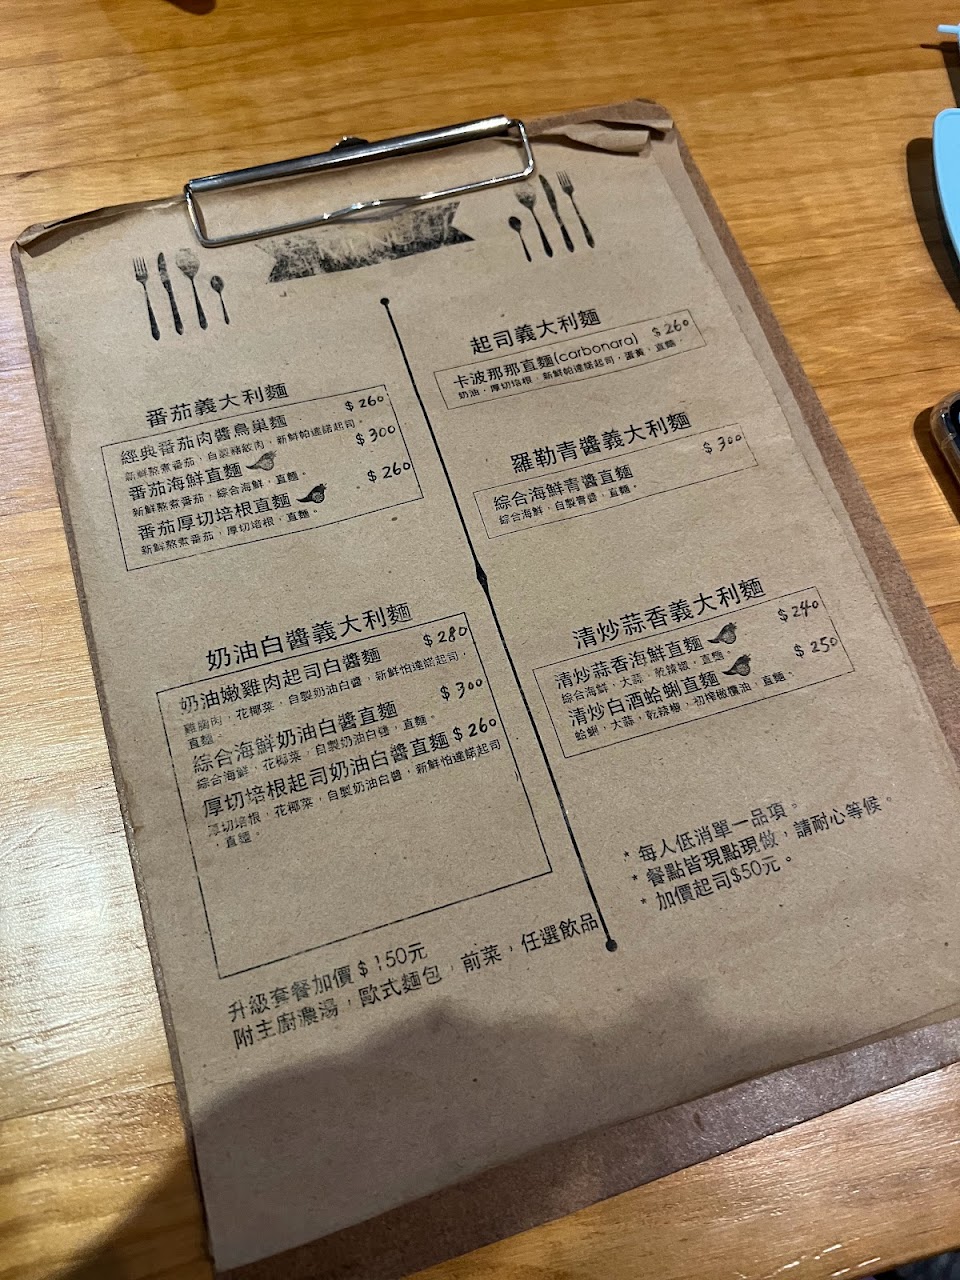 MENU
番茄義大利麵
經典番茄肉醬鳥巢麵 $260
新鮮熬煮番茄，自製豬絞肉，新鮮帕達諾起司。
番茄海鮮直麵 $300
新鮮熬煮番茄，綜合海鮮，直麵。
番茄厚切培根直麵 $260
新鮮熬煮番茄，厚切培根，直麵。
奶油白醬義大利麵
奶油嫩雞肉起司白醬麵 $280
雞胸肉，花椰菜，自製奶油白醬，新鮮怕達諾起司，
直麵。
綜合海鮮奶油白醬直麵 $300
綜合海鮮，花椰菜，自製奶油白醬，直麵。
厚切培根起司奶油白醬直麵 $260
厚切培根，花椰菜，自製奶油白醬，新鮮怕達諾起司
，直麵。
升級套餐加價$150元
附主廚濃湯，歐式麵包，前菜，任選飲品
起司義大利麵
卡波那那直麵(carbonara) $260
奶油，厚切培根，新鮮帕達諾起司，蛋黃，直麵。
羅勒青醬義大利麵
綜合海鮮青醬直麵 $300
綜合海鮮，自製青醬，直麵。
清炒蒜香義大利麵
清炒蒜香海鮮直麵 $240
綜合海鮮，大蒜，乾辣椒，直麵。
清炒白酒蛤蜊直麵 $250
蛤蜊，大蒜，乾辣椒，初榨橄欖油，直麵。
* 每人低消單一品項。
* 餐點皆現點現做，請耐心等候。
* 加價起司$50元。